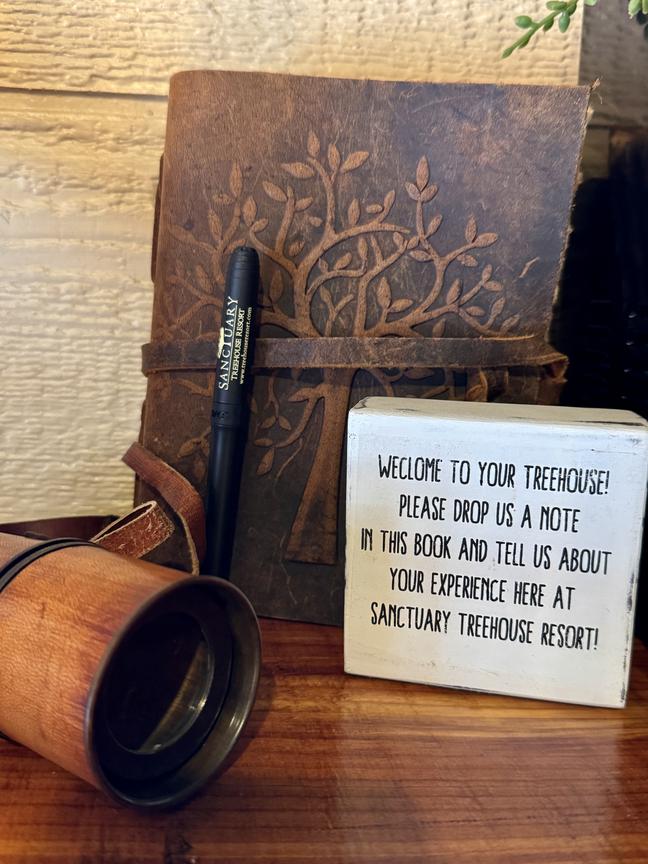 SANCTUARY
TREEHOUSE RESORT
www.treehouseresort.com
WECLOME TO YOUR TREEHOUSE!
PLEASE DROP US A NOTE
IN THIS BOOK AND TELL US ABOUT
YOUR EXPERIENCE HERE AT
SANCTUARY TREEHOUSE RESORT!